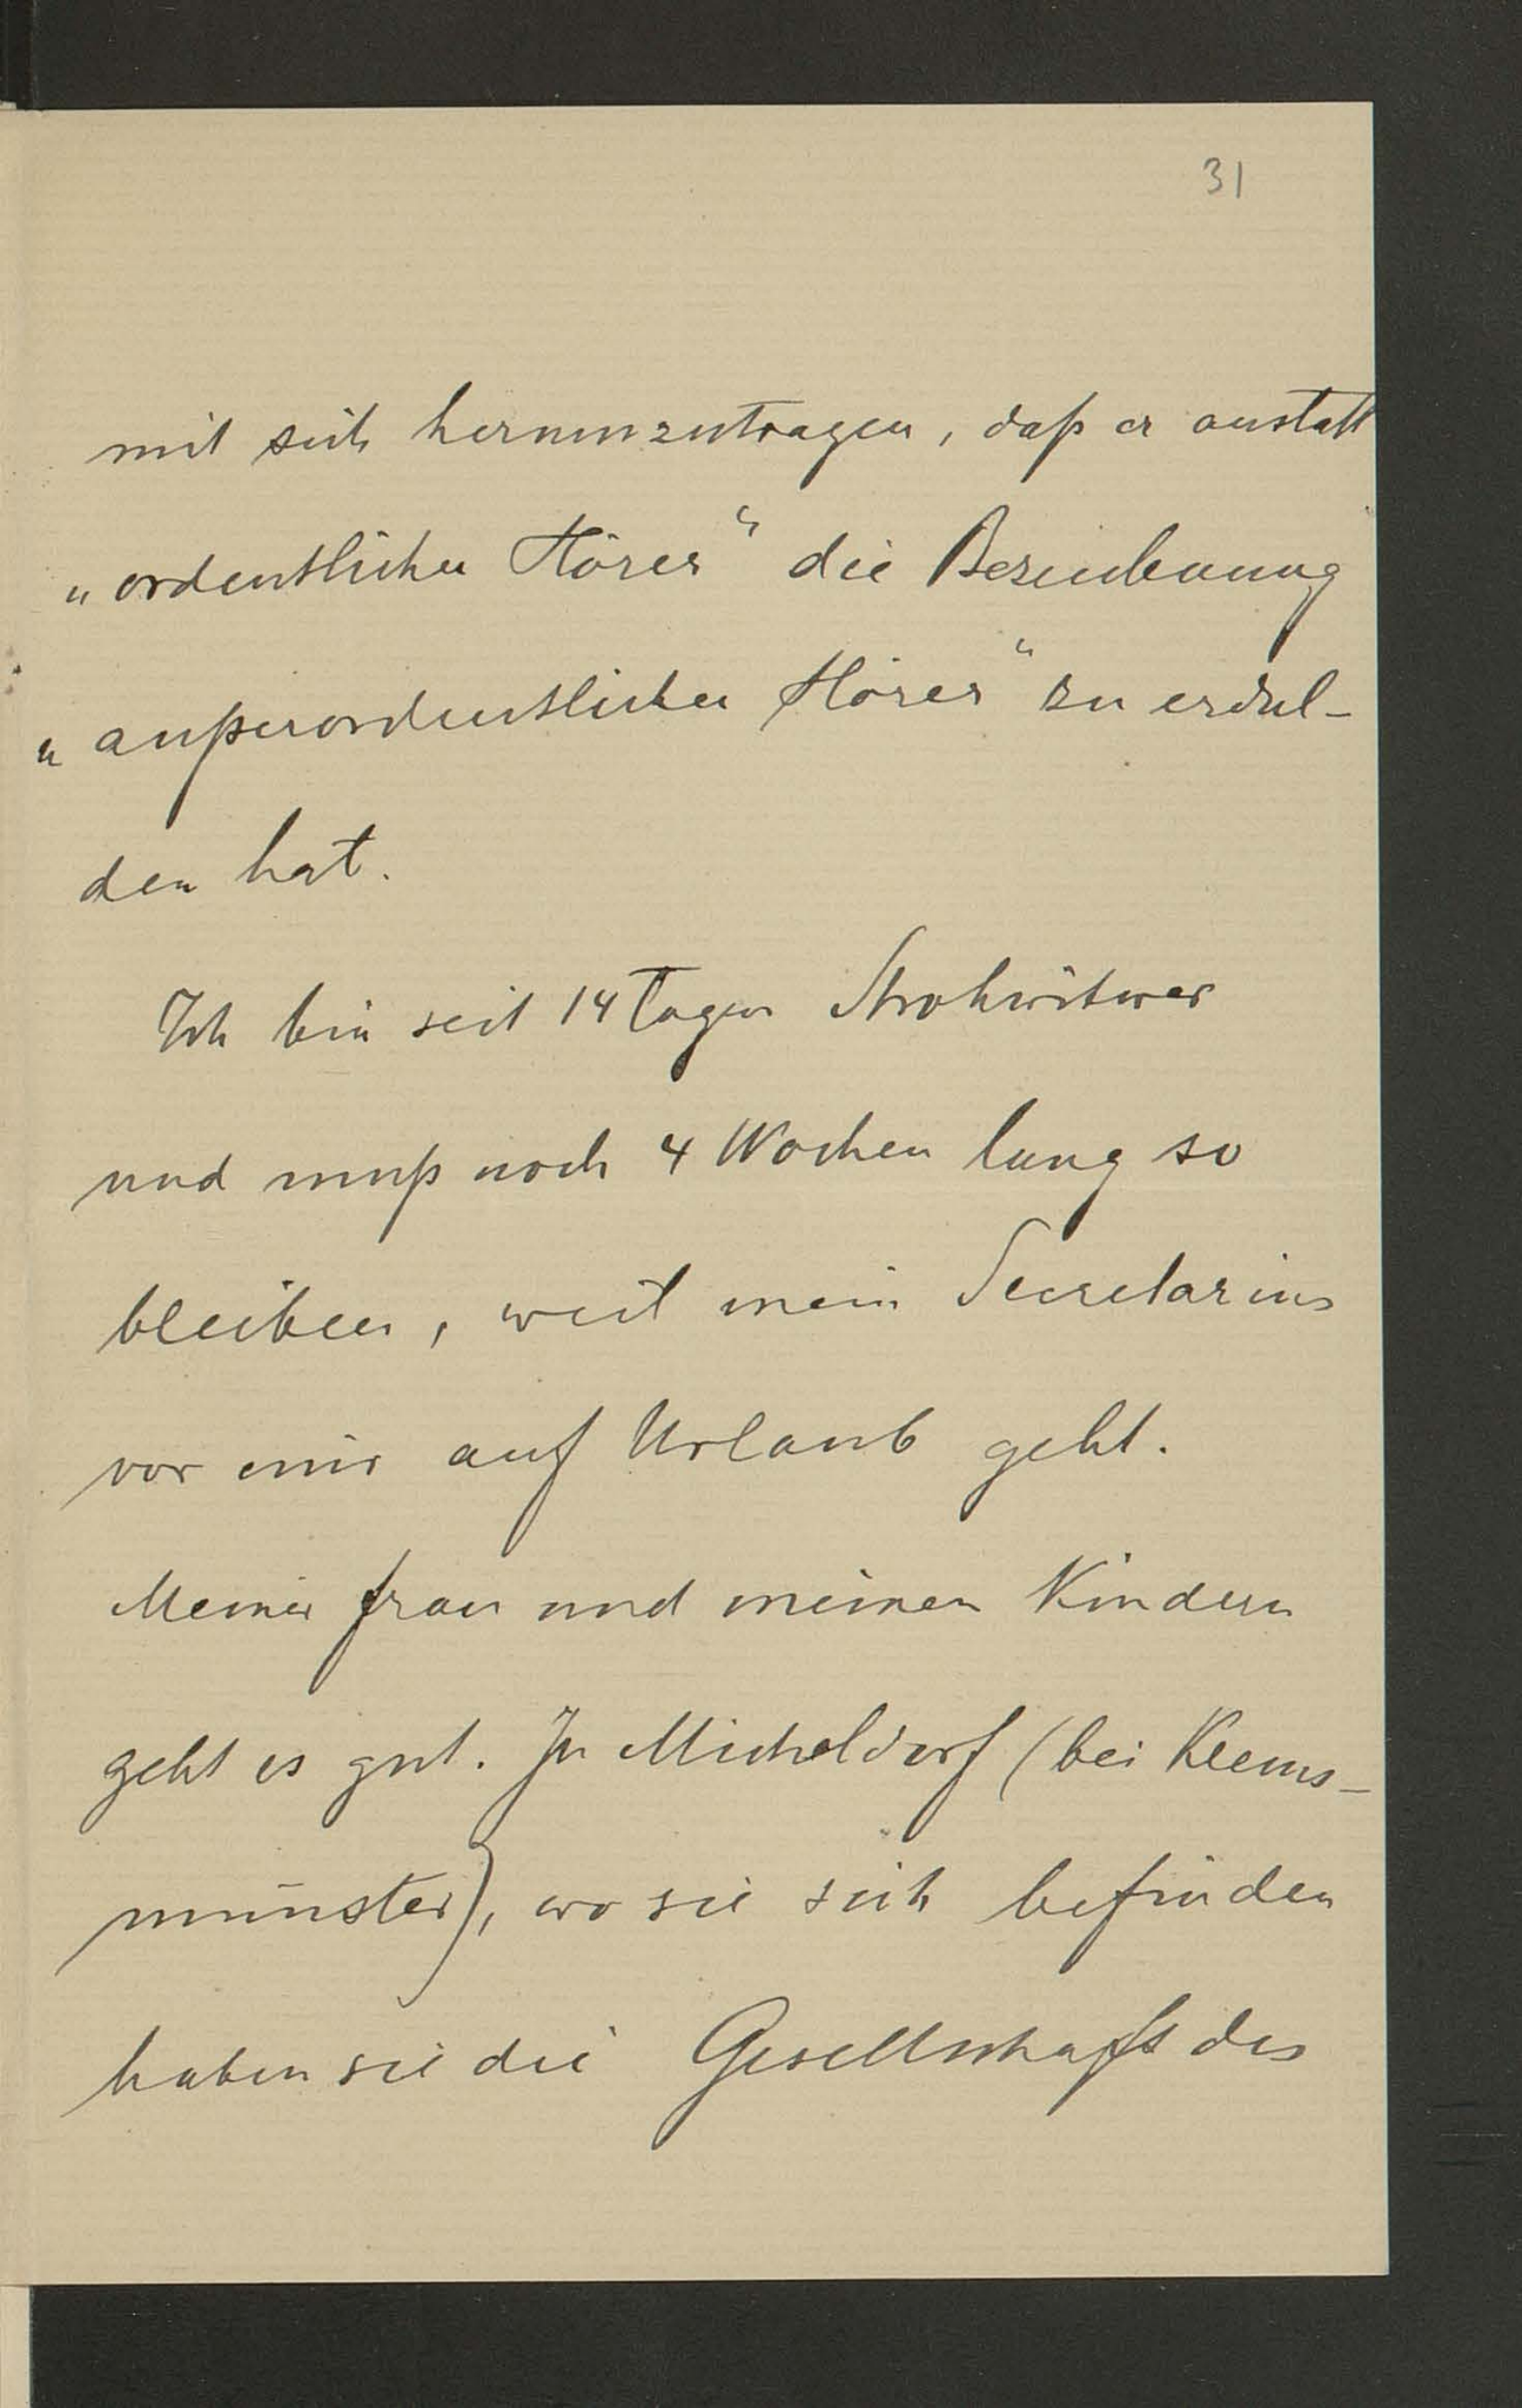 31
mit sich herumzutragen, daß er anstatt
„ordentlicher Hörer“ die Bezeichnung
„außerordentlicher Hörer“ zu erdul-
den hat.
Ich bin seit 14 Tagen Strohwitwer
und muß noch 4 Wochen lang so
bleiben, weil mein Secretarius
vor mir auf Urlaub geht.
Meiner Frau und meinen Kindern
geht es gut. In Micheldorf (bei Krems-
münster), wo sie sich befinden
haben sie die Gesellschaft des